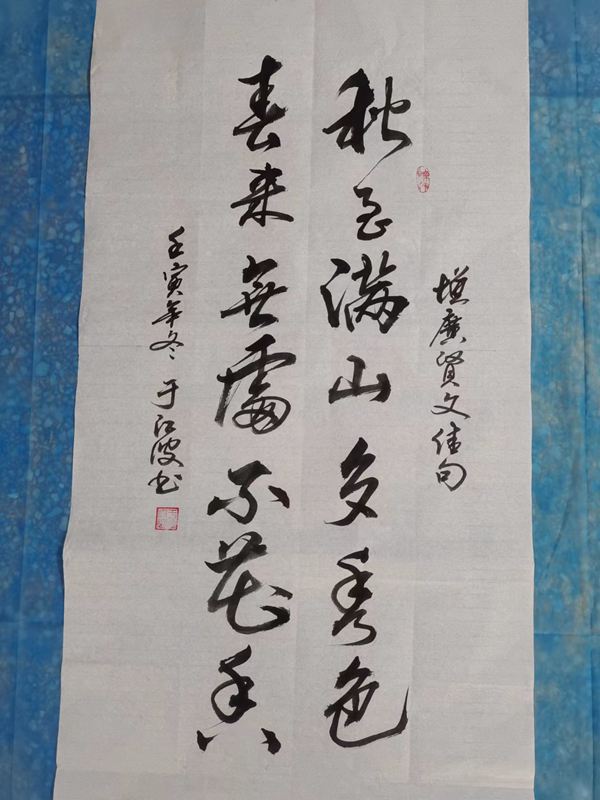 增廣賢文佳句
秋至满山多秀色
春来無處不花香
壬寅年冬 于江波书